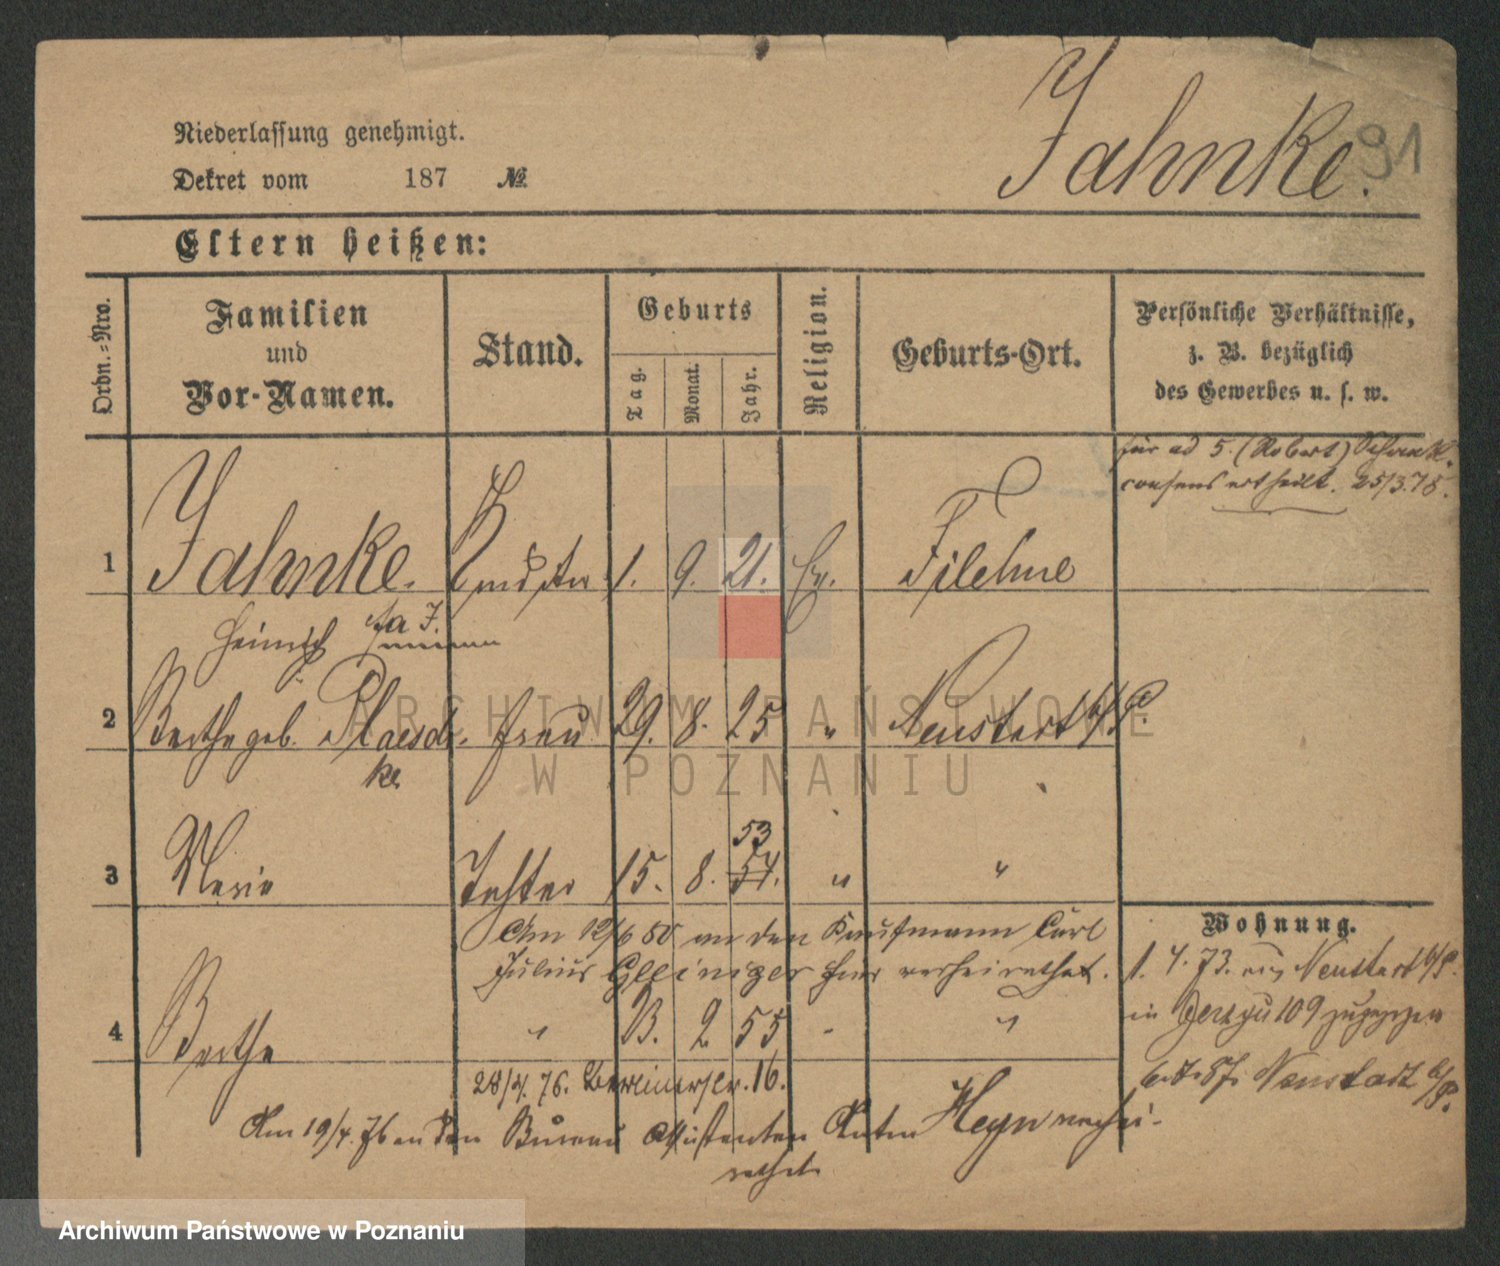 Jahnke. 91
Niederlassung genehmigt.
Dekret vom 187 №
Eltern heißen:
Ordn.-Nro.
Familien und Vor-Namen.
Stand.
Geburts
Tag.
Monat.
Jahr.
Religion.
Geburts-Ort.
Persönliche Verhältnisse,
z. B. bezüglich
des Gewerbes u. s. w.
für ad 5. (Robert) Schank
consens ertheilt. 25/3.78.
1 Jahnke. 1. 9. 21. Ev. Filehne
Heinrich
2 Bertha geb. Plaesch- Frau 29. 8. 25 " Neustadt b/P.
ke
53
3 Marie Tochter 15. 8. 54. " "
Am 12/6 80 an den Kaufmann Carl
Julius verheirathet.
4 Bertha " 13. 2 55 " "
28/4. 76. Berlinerstr. 16.
Am 19/4. 76 an den Bureau Assistenten Anton Heyn verhei-
rathet
Wohnung.
1. 4. 73. aus Neustadt b/P.
in 109 zugezogen
Neustadt b/P.
ARCHIWUM PAŃSTWOWE
W POZNANIU
Archiwum Państwowe w Poznaniu